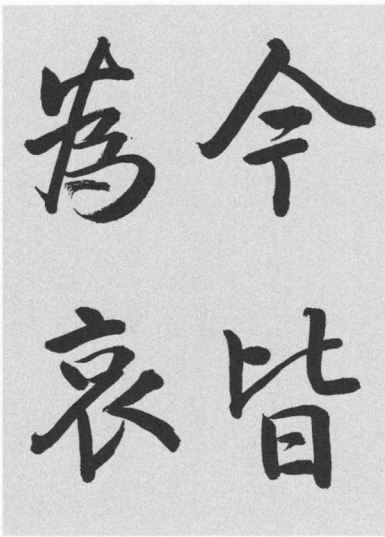 今皆
為哀